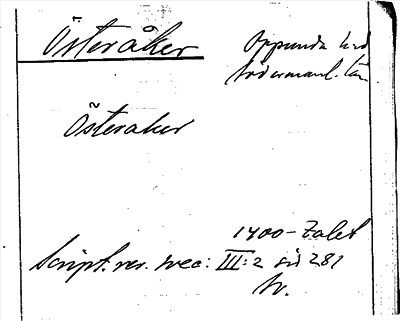 Österåker
Oppunda hrd
Södermanl. län
Österaker
1400-talet
Script. rer. svec: III:2 sid 281